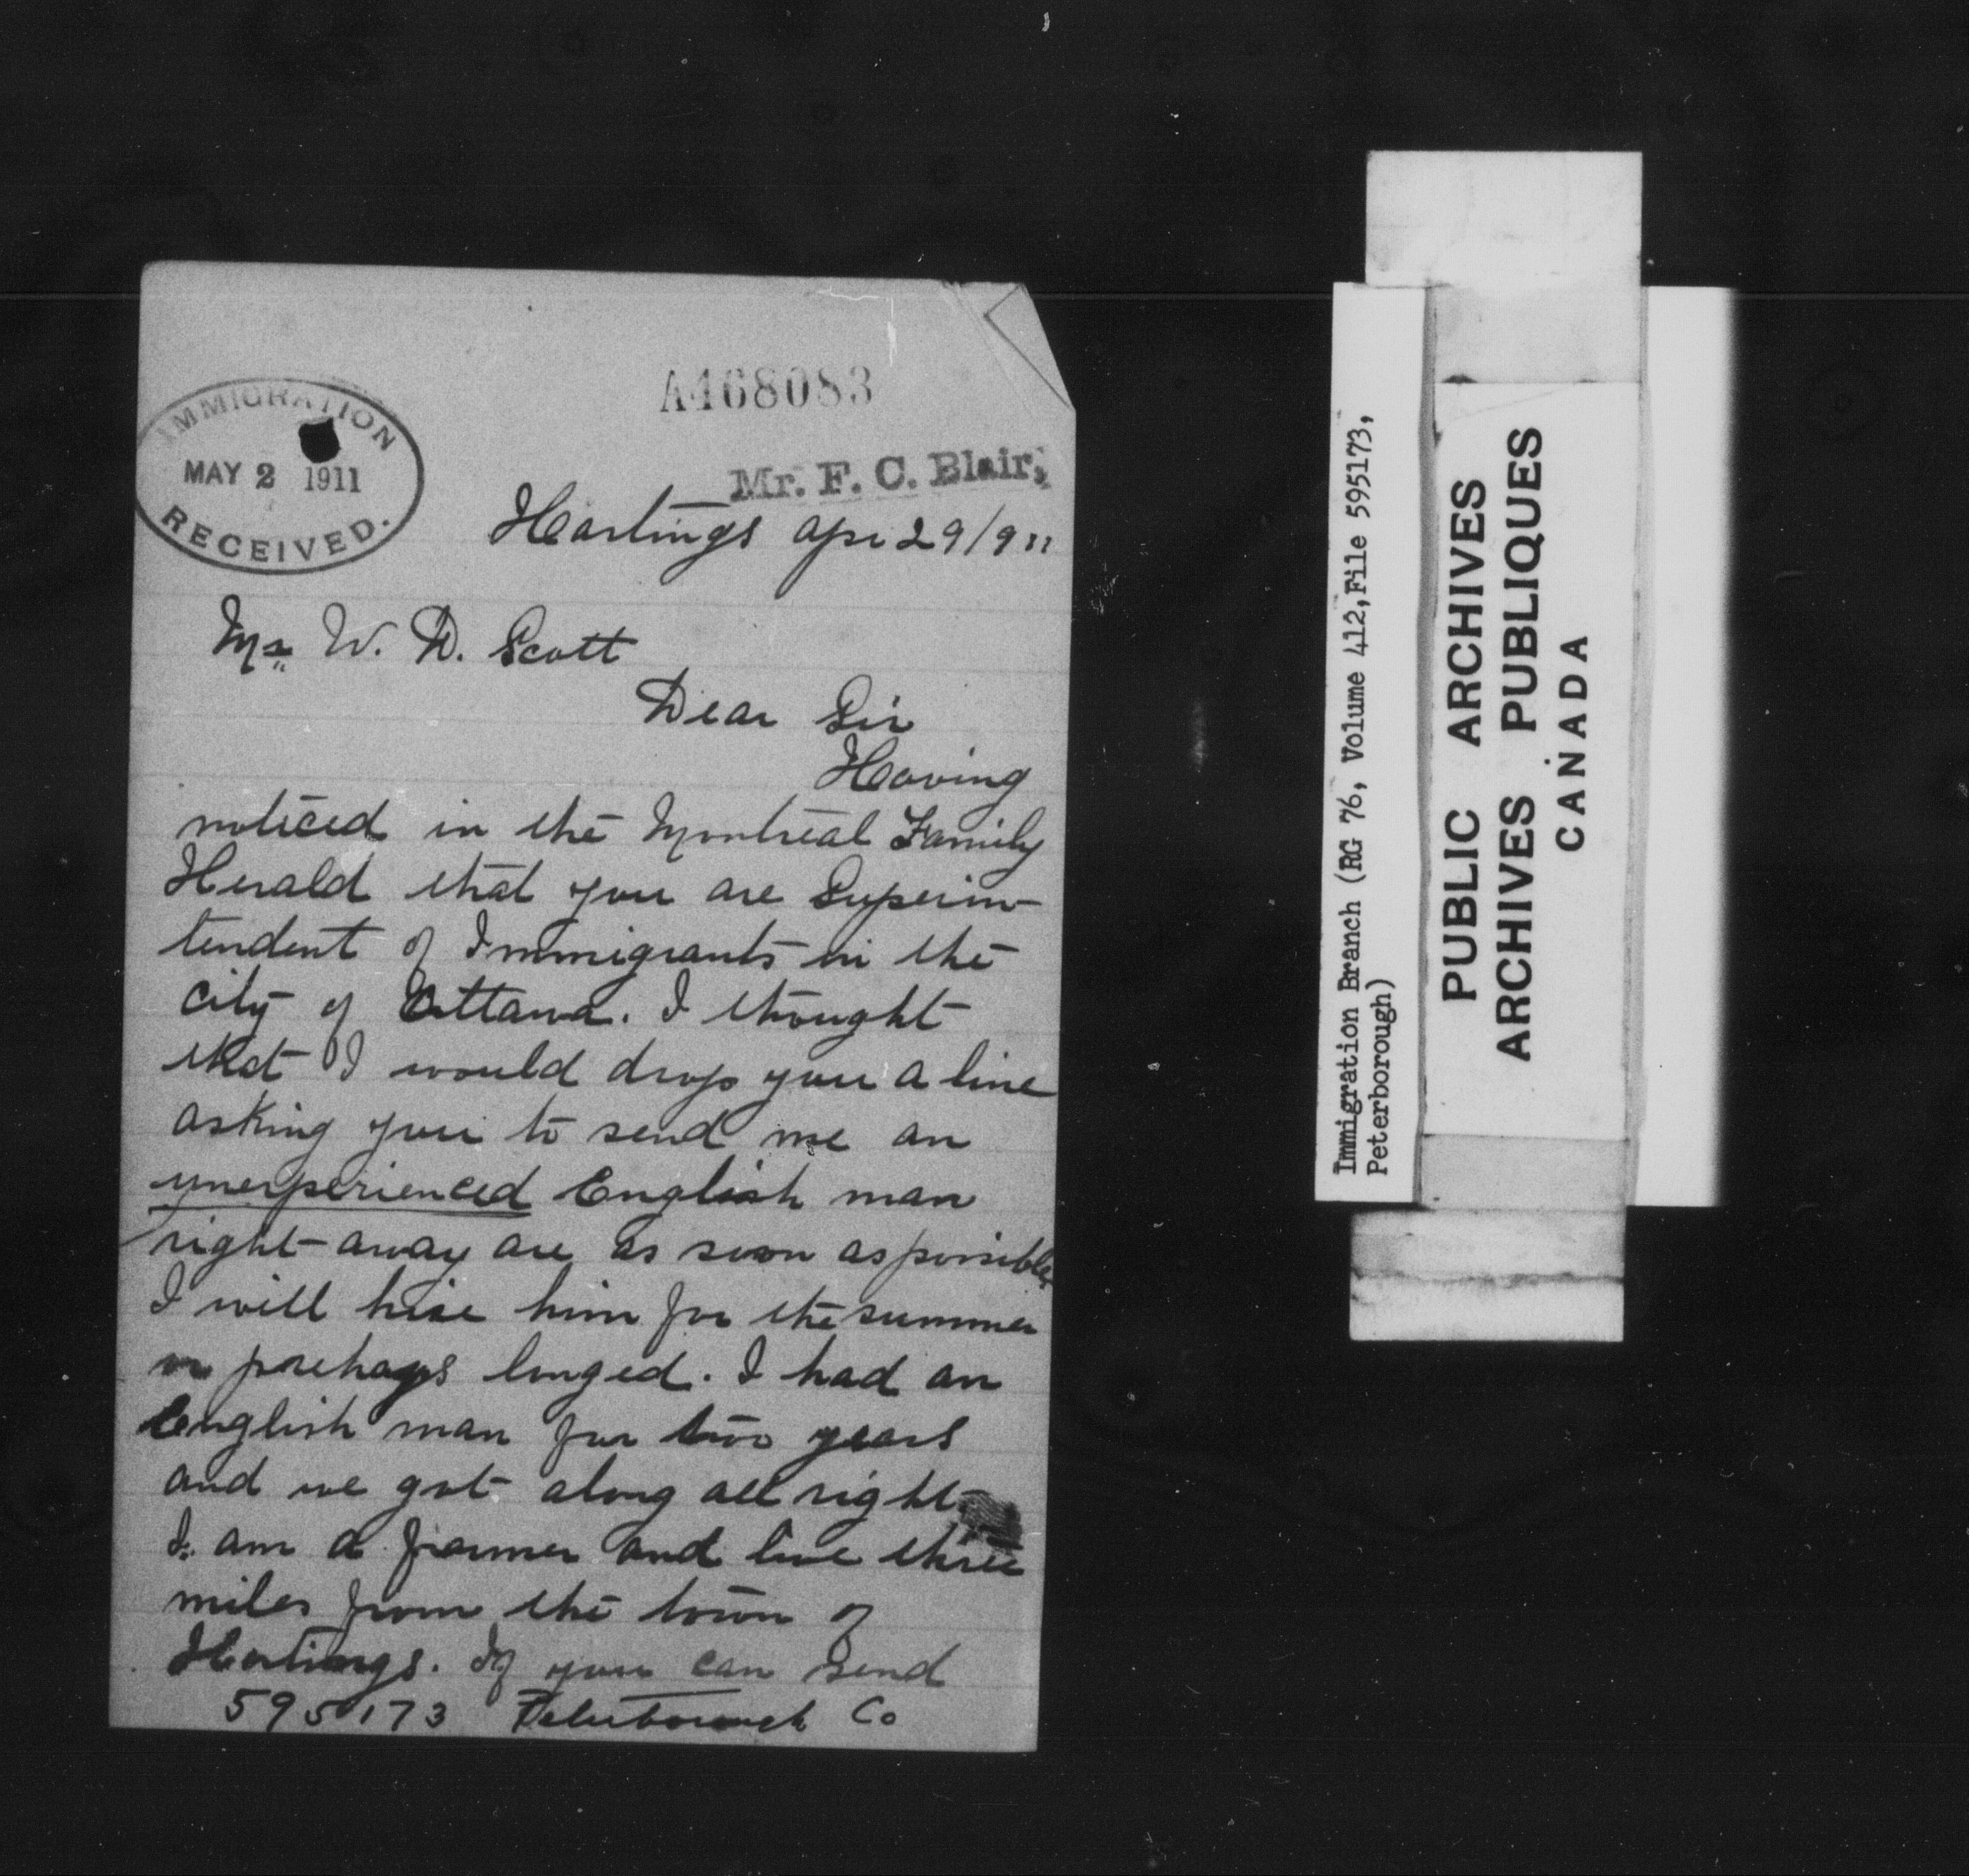 A468083
IMMIGRATION
MAY 2 1911
RECEIVED.
Mr. F. C. Blair,
Hastings Apr 29/911
Mr W. D. Scott
Dear Sir
Having
noticed in the Montreal Family
Herald that you are Superin-
tendent of Immigrants in the
city of Ottawa. I thought
that I would drop you a line
asking you to send me an
unexperienced English man
right away are as soon as possible
I will hire him for the summer
or porehaps longed. I had an
English man for two years
and we got along all right
I am a farmer and live three
miles from the town of
Hastings. If you can send
595173 Peterborough Co
Immigration Branch (RG 76, Volume 412,File 595173,
Peterborough)
PUBLIC ARCHIVES
ARCHIVES PUBLIQUES
CANADA